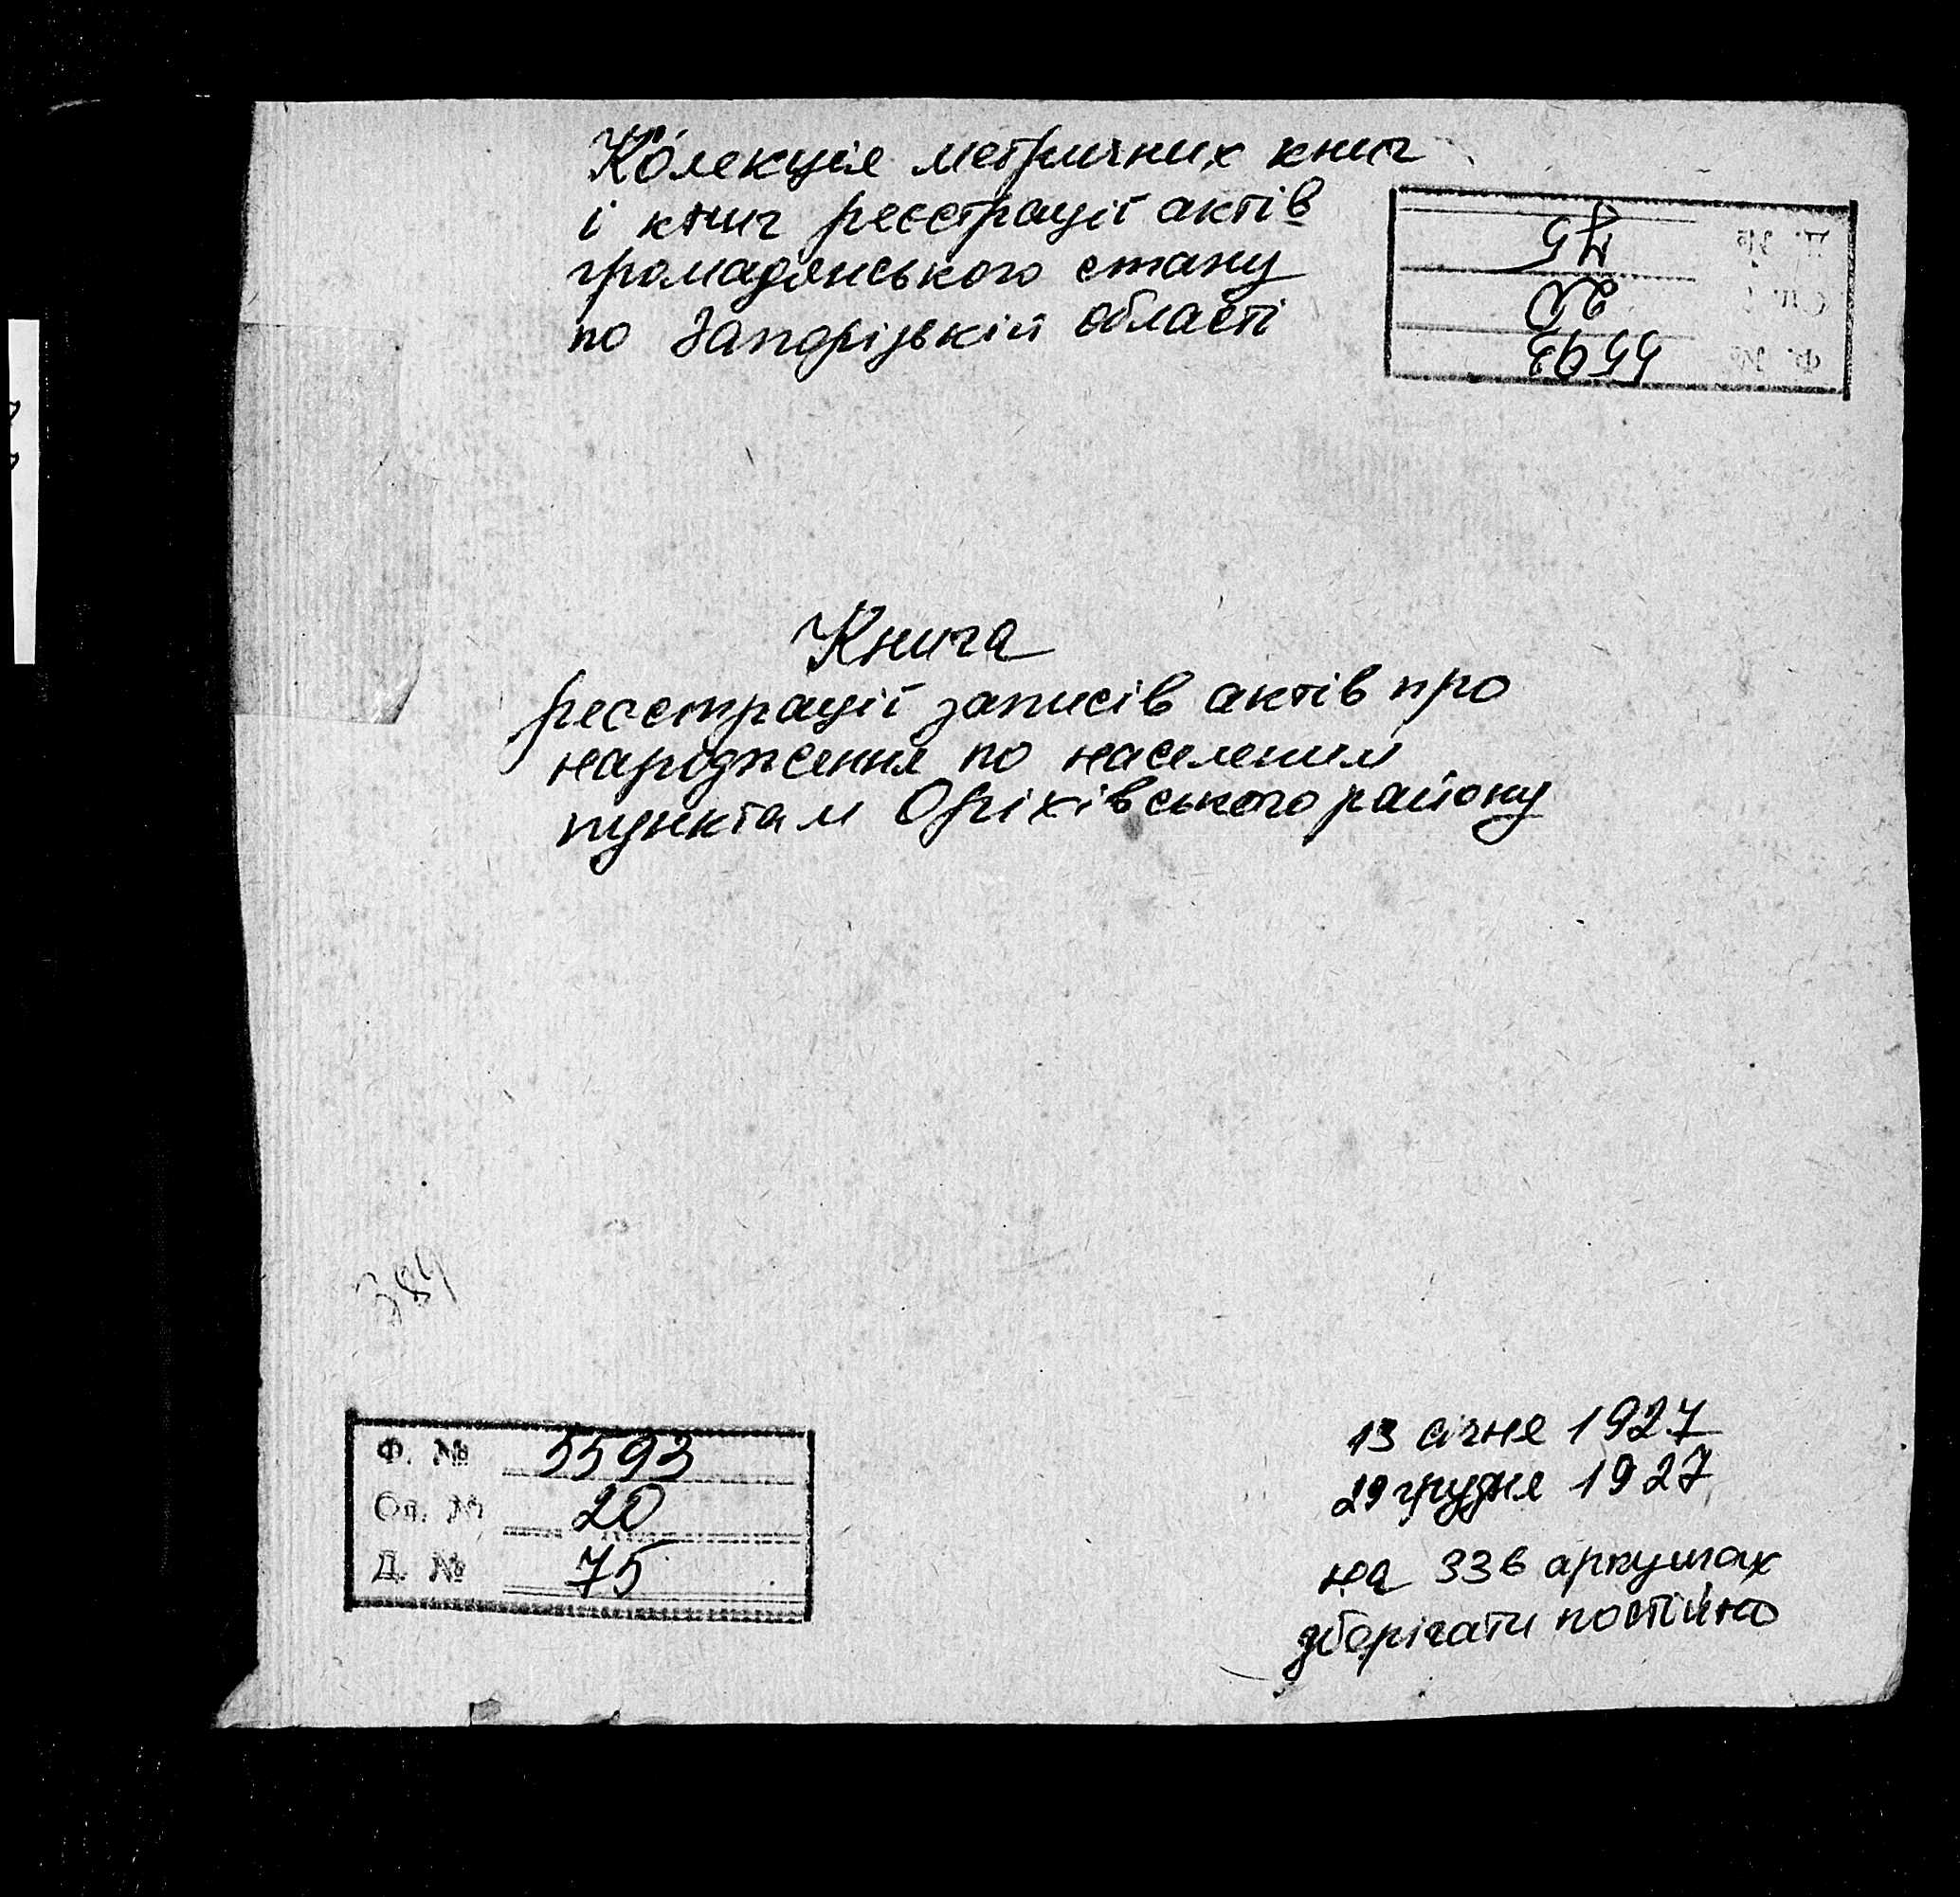 Колекція метричних книг
і книг реєстрації актів
громадянського стану
по Запорізькій області
Ф. № 5593
Оп. № 20
Д. № 75
Книга
реєстрації записів актів про
народження по населеним
пунктам Оріхівського району
384
Ф. № 5593
Оп. № 20
Д. № 75
13 січня 1927
29 грудня 1927
на 336 аркушах
зберігати постійно